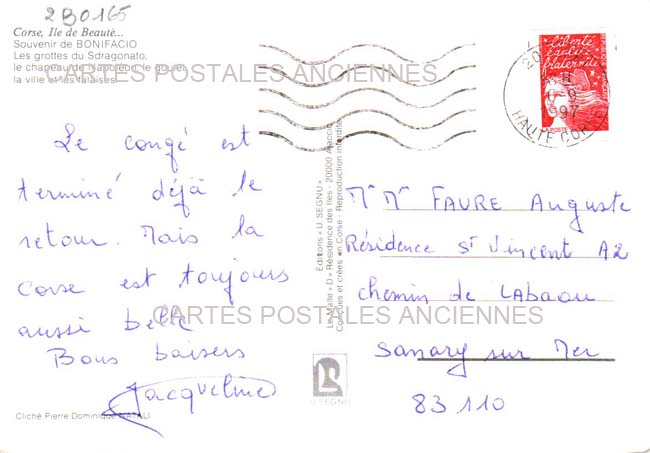 2B0165
Corse, Ile de Beauté...
Souvenir de BONIFACIO
Les grottes du Sdragonato,
le chapeau de Napoléon, le goulet,
la ville et les falaises
CARTES POSTALES ANCIENNES
Le congé est
terminé déjà le
retour. Mais la
corse est toujours
aussi belle
Bons baisers
Jacqueline
Cliché Pierre Dominique NATALI
Éditions « U SEGNU »
Le Maltе « D » Résidence des Iles - 20000 Ajaccio
Conçues et créées en Corse - Reproduction interdite
U SEGNU
liberté
égalité
fraternité
LA POSTE
1997
HAUTE CORSE
Mr Mme FAURE Auguste
Résidence St Vincent A2
chemin de LABAOU
Sanary sur Mer
83 110
CARTES POSTALES ANCIENNES